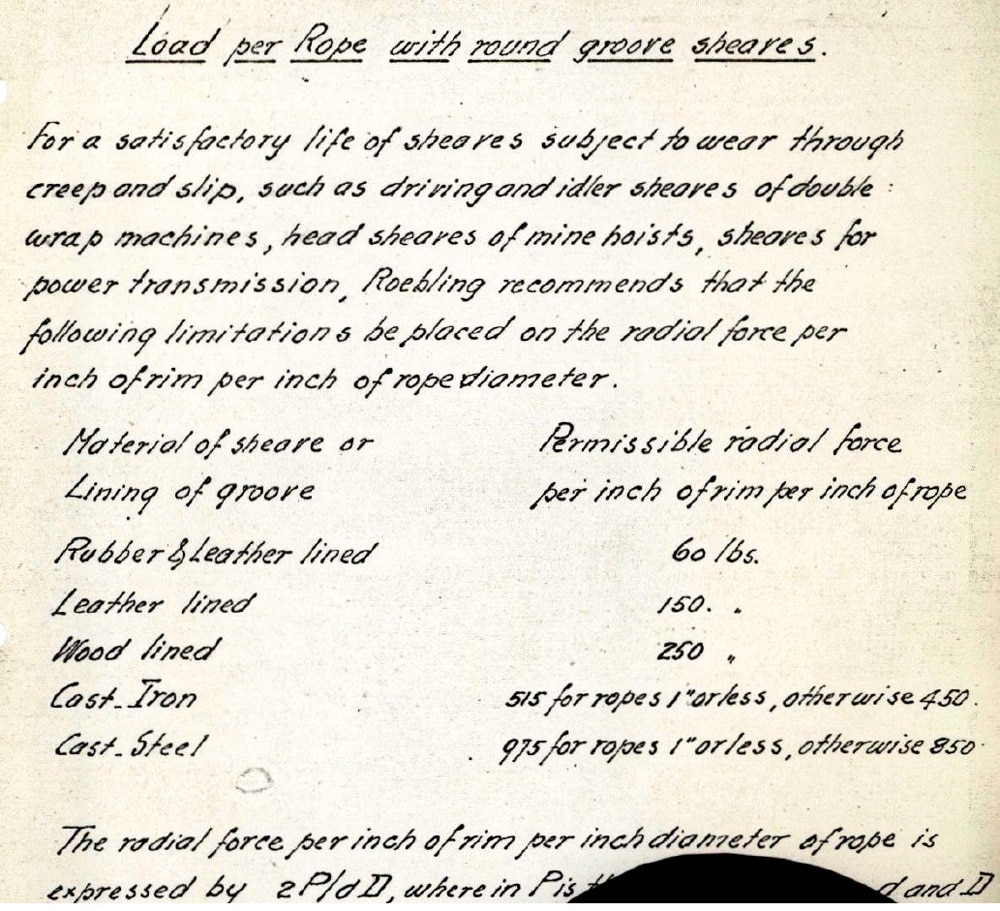 Load per Rope with round groove sheaves.
For a satisfactory life of sheaves subject to wear through
creep and slip, such as driving and idler sheaves of double
wrap machines, head sheaves of mine hoists, sheaves for
power transmission, Roebling recommends that the
following limitations be placed on the radial force per
inch of rim per inch of rope diameter.
Material of sheave or Permissible radial force
Lining of groove per inch of rim per inch of rope
Rubber & Leather lined 60 lbs.
Leather lined 150. "
Wood lined 250 "
Cast-Iron 515 for ropes 1" or less, otherwise 450.
Cast-Steel 975 for ropes 1" or less, otherwise 850.
The radial force per inch of rim per inch diameter of rope is
expressed by 2P/dD, where in P is d and D